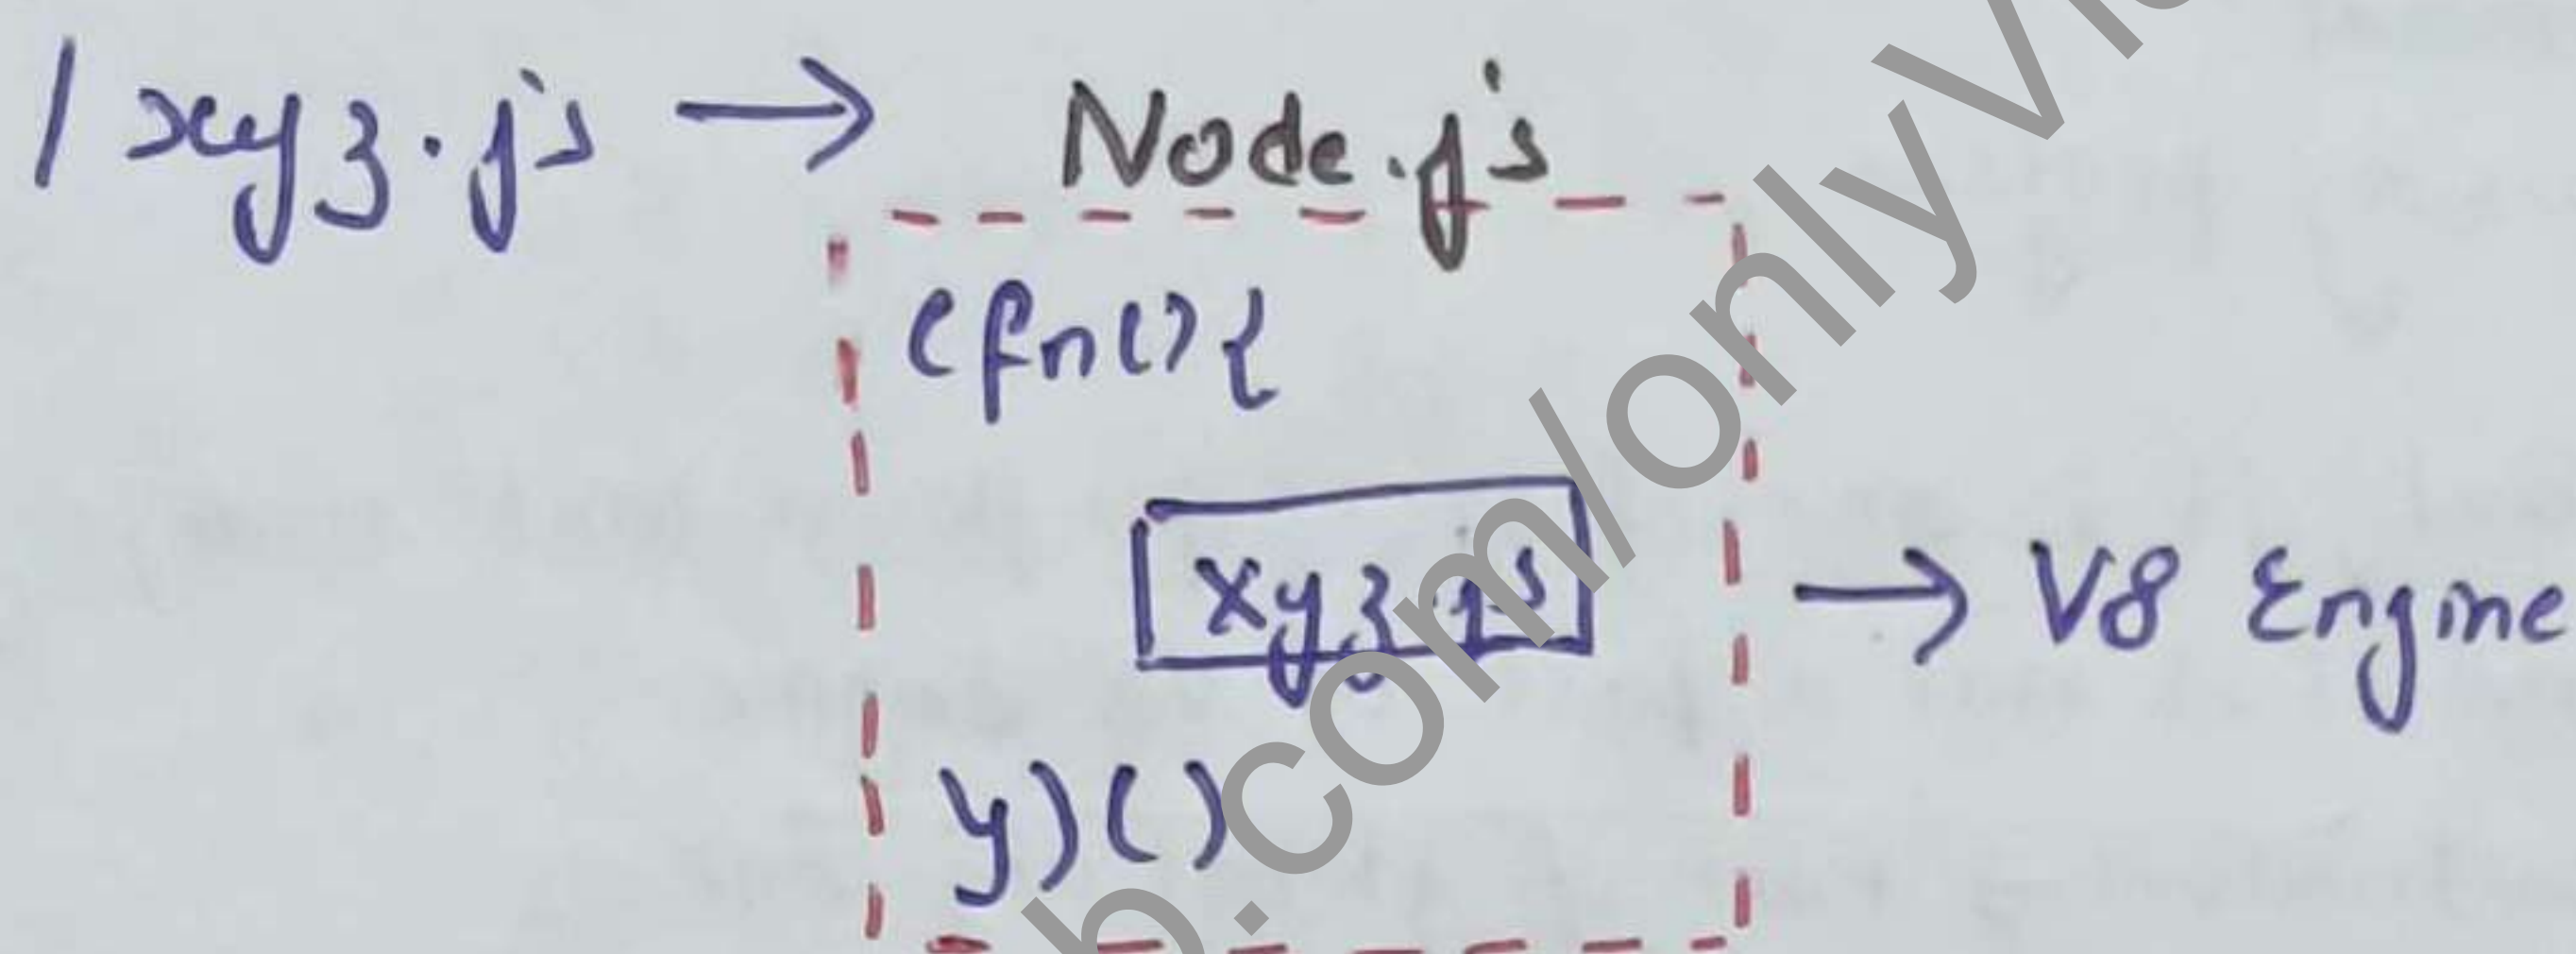 /xyz.js → Node.js
(fn(){
xyz.js
→ V8 Engine
})()
b.com/onlyVi